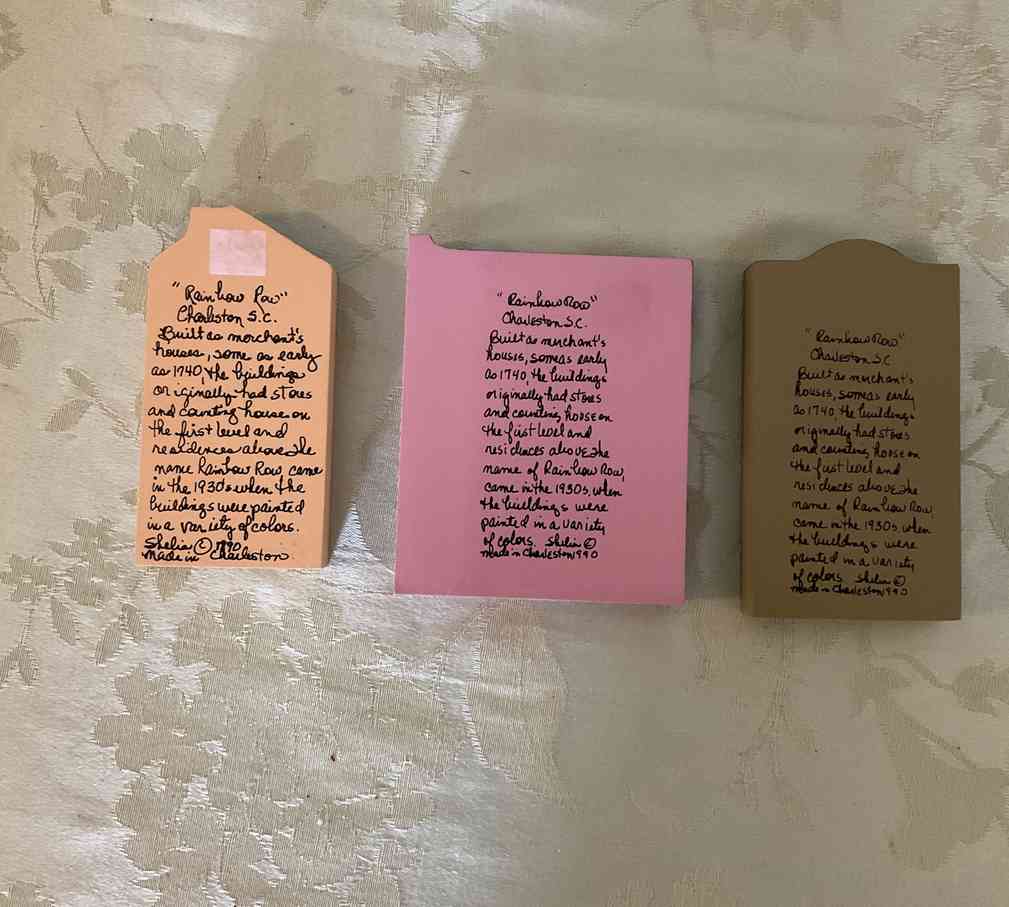 "Rainbow Row"
Charleston S.C.
Built as merchant's
houses, some as early
as 1740, the buildings
originally had stores
and counting house on
the first level and
residences above. The
name Rainbow Row, came
in the 1930s when the
buildings were painted
in a variety of colors.
Shelia © 1990
made in Charleston
"Rainbow Row"
Charleston S.C.
Built as merchant's
houses, some as early
as 1740, the buildings
originally had stores
and counting house on
the first level and
residences above. The
name of Rainbow Row,
came in the 1930s, when
the buildings were
painted in a variety
of colors. Shelia ©
made in Charleston 1990
"Rainbow Row"
Charleston S.C
Built as merchant's
houses, some as early
as 1740, the buildings
originally had stores
and counting house on
the first level and
residences above. The
name of Rainbow Row,
came in the 1930s, when
the buildings were
painted in a variety
of colors. Shelia ©
made in Charleston 1990